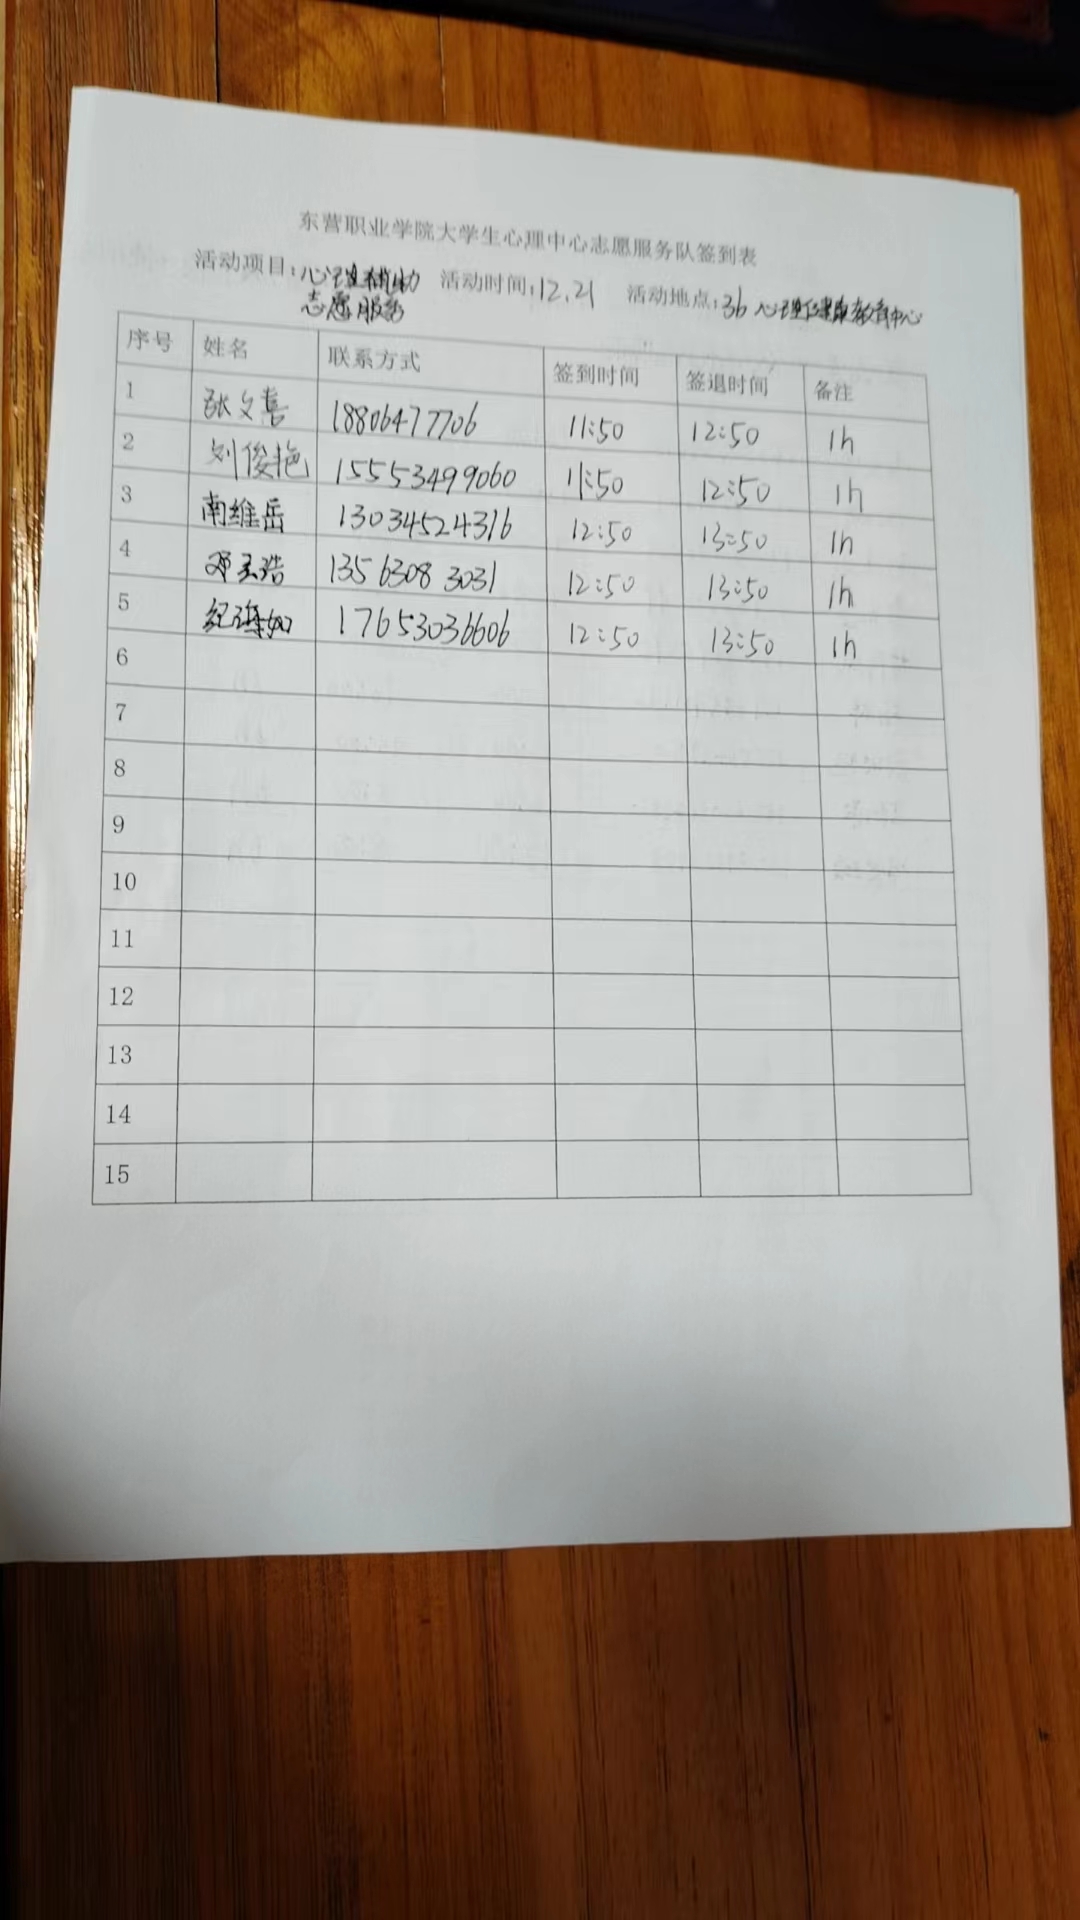 东营职业学院大学生心理中心志愿服务队签到表
活动项目:心理辅助 活动时间:12.21 活动地点:36 心理健康教育中心
志愿服务
序号 姓名 联系方式 签到时间 签退时间 备注
1 张文喜 18806477706 11:50 12:50 1h
2 刘俊艳 15553499060 11:50 12:50 1h
3 南维岳 13034524316 12:50 13:50 1h
4 浩 13563083031 12:50 13:50 1h
5 纪 17653036606 12:50 13:50 1h
6
7
8
9
10
11
12
13
14
15